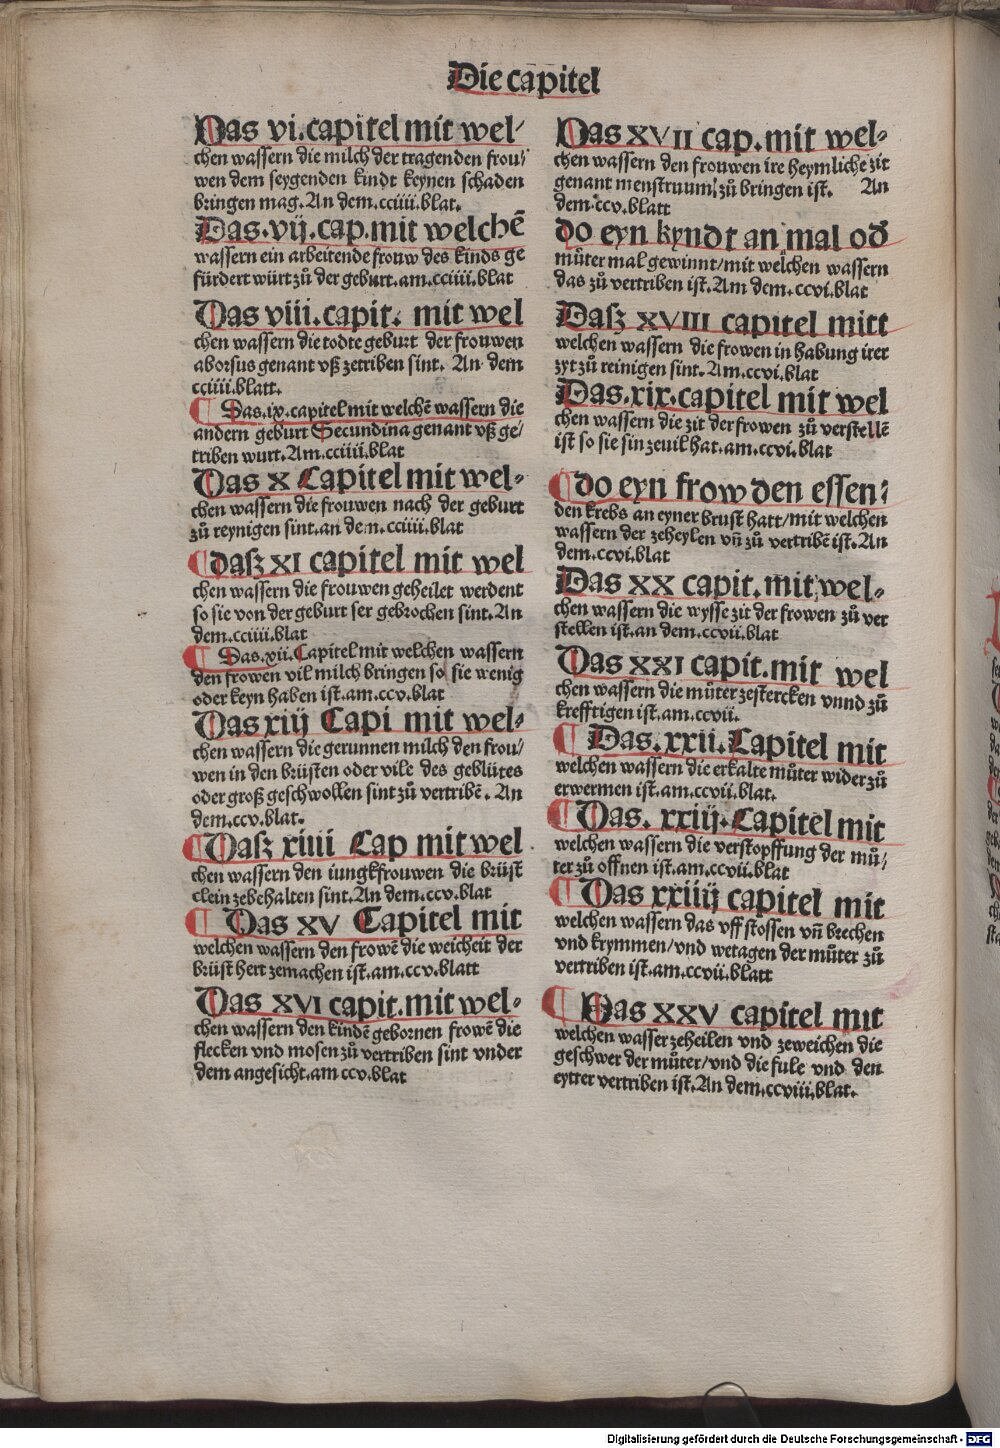 Die capitel
Das vi.capitel mit wel⸗
chen wassern die milch der tragenden frou⸗
wen dem seygenden kindt keynen schaden
bringen mag. An dem.cciiii.blat.
Das.vij.cap.mit welchē
wassern ein arbeitende frouw des kinds ge
fürdert würt zů der geburt.am.cciiii.blat
Das viii.capit. mit wel
chen wassern die todte geburt der frouwen
aborsus genant vß zetriben sint. An dem
cciiii.blatt.
¶ Das.ix.capitel mit welchē wassern die
andern geburt Secundina genant vß ge⸗
triben wurt. Am.cciiii.blat
Das X Capitel mit wel⸗
chen wassern die frouwen nach der geburt
zů reynigen sint.an dem.cciiii.blat
¶ dasz XI capitel mit wel
chen wassern die frouwen geheilet werdent
so sie von der geburt ser gebrochen sint. An
dem.cciiii.blat
¶ Das.xii.Capitel mit welchen wassern
den frowen vil milch bringen so sie wenig
oder keyn haben ist.am.ccv.blat
Das xiij Capi mit wel⸗
chen wassern die gerunnen milch den frou⸗
wen in den brüsten oder vile des geblütes
oder groß geschwollen sint zů vertribē. An
dem.ccv.blat.
¶ Dasz xiiii Cap mit wel
chen wassern den iungkfrouwen die brüst
clein zebehalten sint. An dem.ccv.blat
¶ Das XV Capitel mit
welchen wassern den frowē die weicheit der
brüst hert zemachen ist.am.ccv.blatt
Das XVI capit.mit wel⸗
chen wassern den kindē gebornen frowē die
flecken vnd mosen zů vertriben sint vnder
dem angesicht.am ccv.blat
Das XVII cap.mit wel⸗
chen wassern den frouwen ire heymliche zit
genant menstruum/zů bringen ist. An
dem.ccv.blatt
do eyn kyndt an mal oď
můter mal gewinnt/mit welchen wassern
das zů vertriben ist. Am dem.ccvi.blat
Dasz XVIII capitel mitt
welchen wassern die frowen in habung irer
zyt zů reinigen sint. Am.ccvi.blat
Das.xix.capitel mit wel
chen wassern die zit der frowen zů verstellē
ist so sie sin zeuil hat.am.ccvi.blat
¶ do eyn frow den essen⸗
den krebs an eyner brust hatt/mit welchen
wassern der zeheylen vñ zů vertribē ist. An
dem.ccvi.blat
Das XX capit.mit wel⸗
chen wassern die wysse zit der frowen zů ver
stellen ist.an dem.ccvii.blat
Das XXI capit.mit wel
chen wassern die můter zestercken vnnd zů
krefftigen ist.am.ccvii.
¶ Das.xxii.Capitel mit
welchen wassern die erkalte můter wider zů
erwermen ist.am.ccvii.blat.
¶ Das. xxiij.Capitel mit
welchen wassern die verstopffung der mů⸗
ter zů offnen ist.am.ccvii.blat
¶ Das xxiiij capitel mit
welchen wassern das vff stossen vñ brechen
vnd krymmen/vnd wetagen der můter zů
vertriben ist.am.ccvii.blatt
¶ Das XXV capitel mit
welchen wasser zeheilen vnd zeweichen die
geschwer der můter/vnd die fule vnd den
eytter vertriben ist. An dem.ccviii.blat.
Digitalisierung gefördert durch die Deutsche Forschungsgemeinschaft - DFG